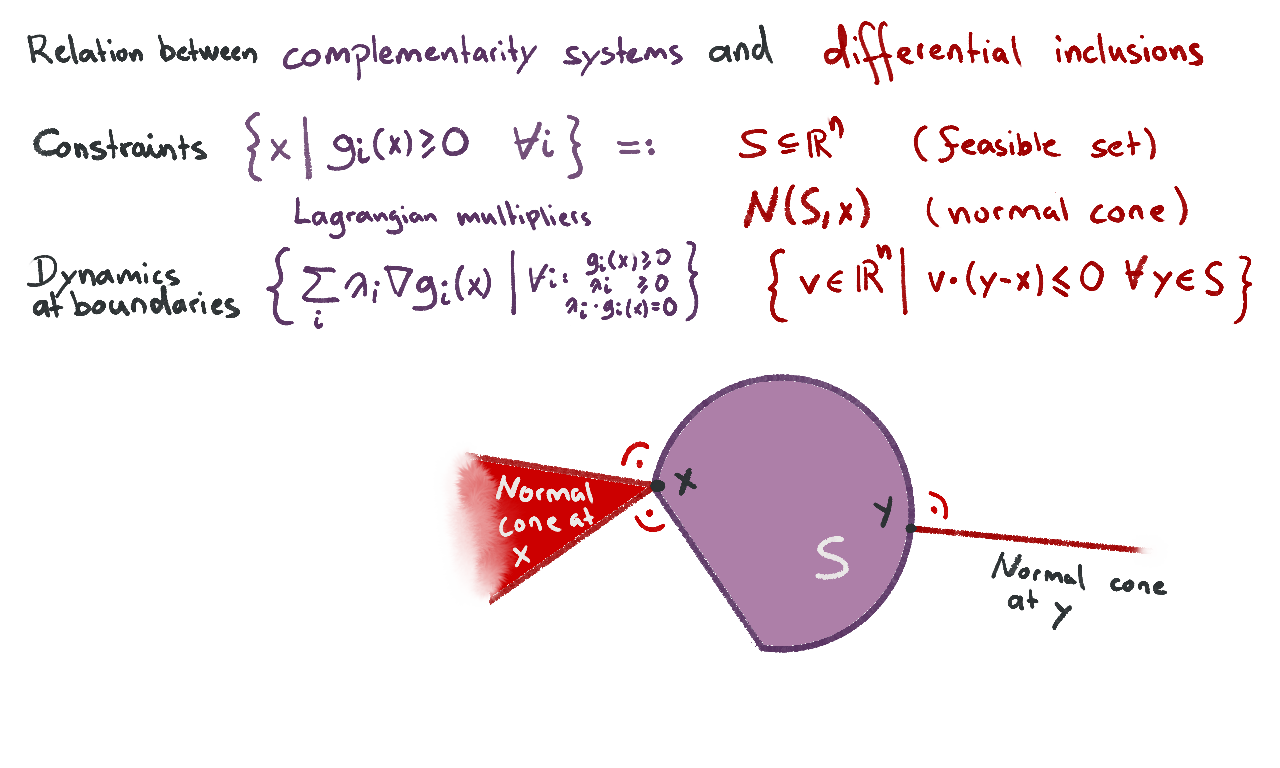 Relation between complementarity systems and differential inclusions
Constraints { x | gᵢ(x) ≥ 0 ∀i } =: S ⊆ ℝⁿ (feasible set)
Lagrangian multipliers N(S, x) (normal cone)
Dynamics
at boundaries
{ ∑ᵢ λᵢ ∇gᵢ(x) | ∀i:
gᵢ(x) ≥ 0
λᵢ ≥ 0
λᵢ · gᵢ(x) = 0 }
{ v ∈ ℝⁿ | v·(y-x) ≤ 0 ∀ y ∈ S }
Normal
cone at
x
x
y
S
Normal cone
at y